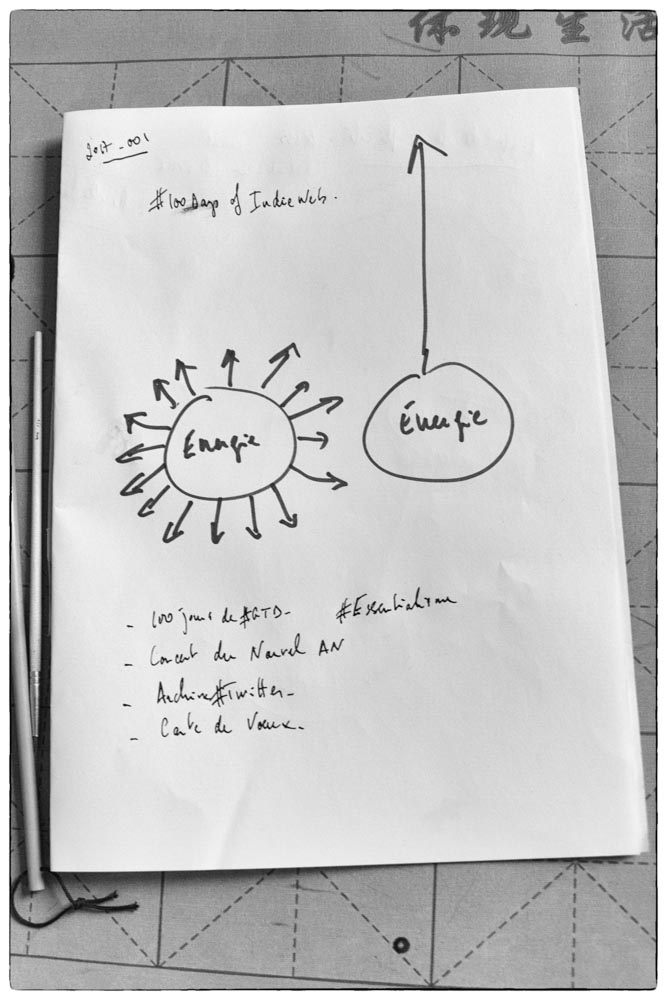 体现生活
2017_001
#100Days of IndieWeb.
Énergie
Énergie
- 100 jours de #GTD- #Essentialisme
- Concert du Nouvel AN
- Archive #Twitter-
- Carte de Voeux.